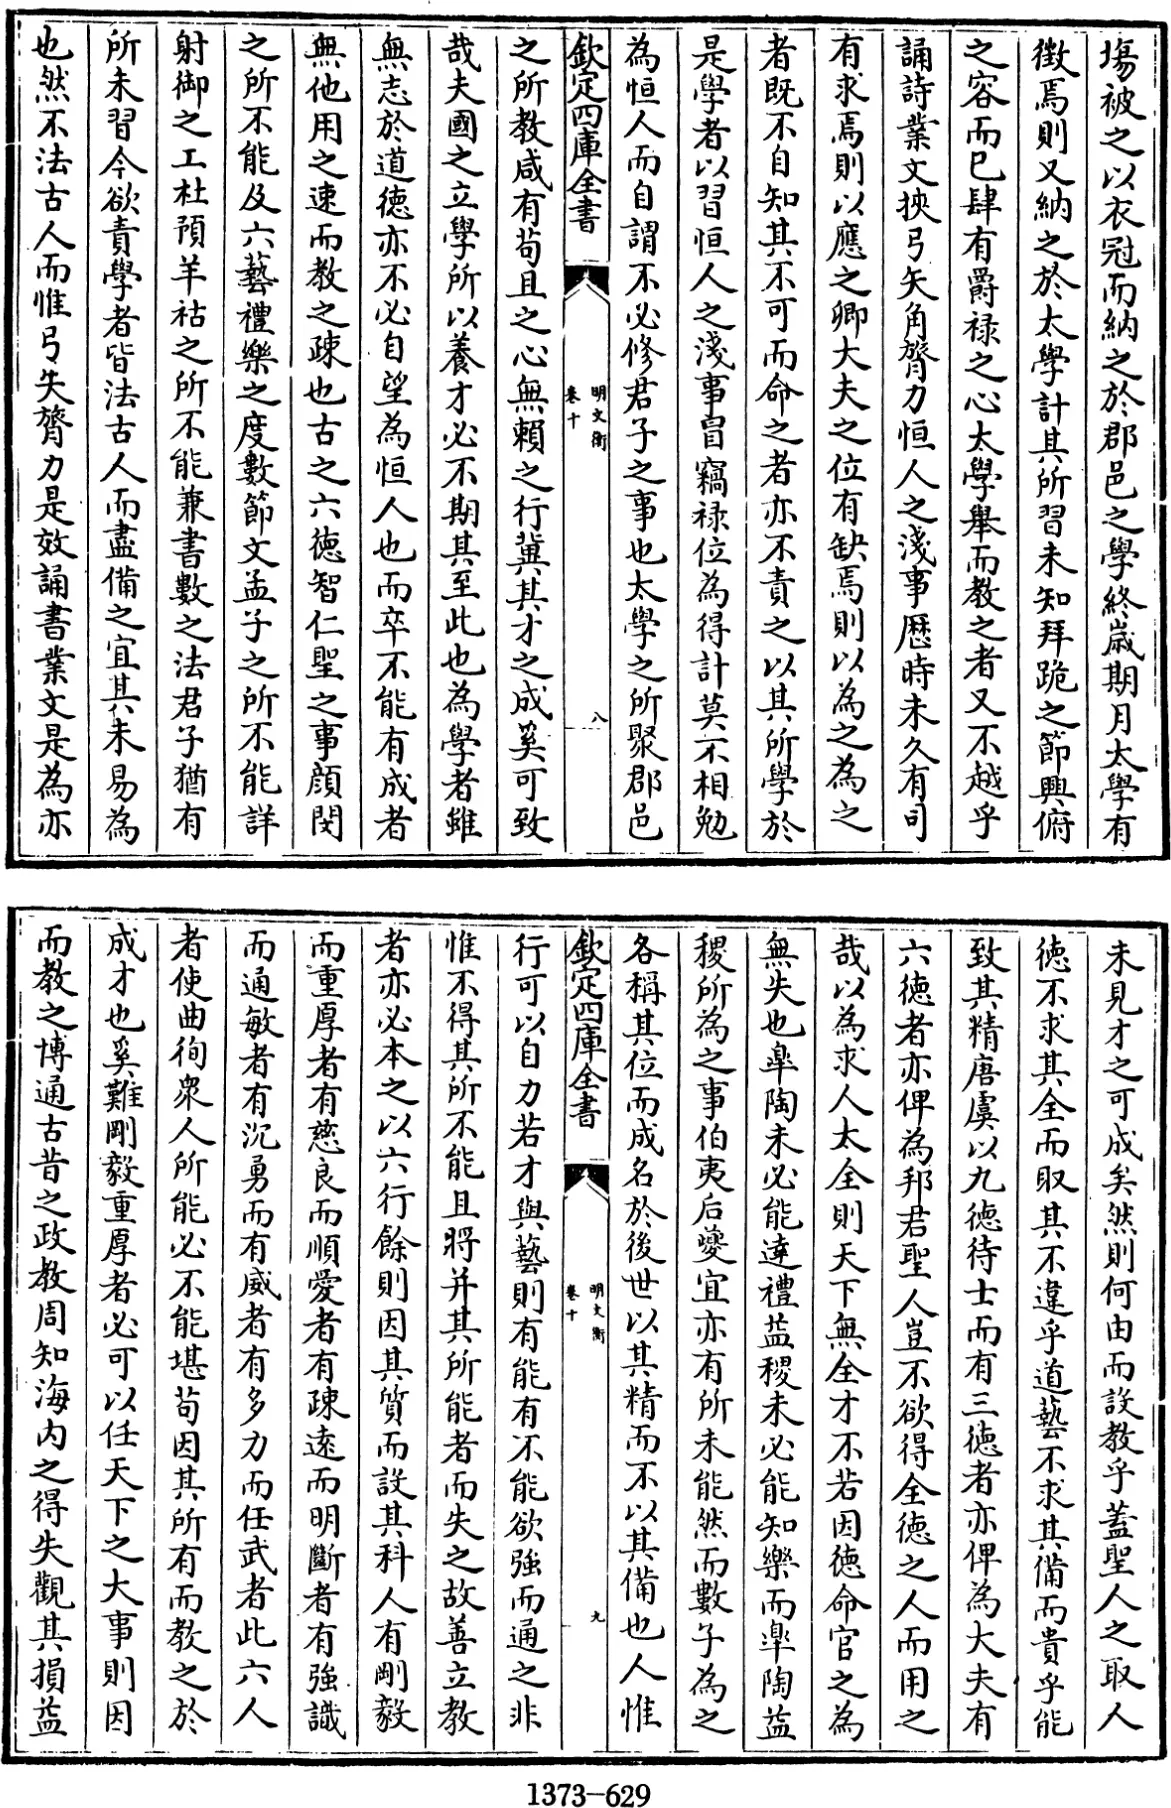 塲被之以衣冠而納之於郡邑之學終歳期月太學有
徵焉則又納之於太學計其所習未知拜跪之節興俯
之容而已肆有爵禄之心太學舉而教之者又不越乎
誦詩業文挾弓矢角膂力恒人之淺事歴時未久有司
有求焉則以應之卿大夫之位有缺焉則以為之為之
者既不自知其不可而命之者亦不責之以其所學於
是學者以習恒人之淺事冒竊禄位為得計莫不相勉
為恒人而自謂不必修君子之事也太學之所聚郡邑
欽定四庫全書
明文衡
卷十
八
之所教咸有苟且之心無賴之行冀其才之成奚可致
哉夫國之立學所以養才必不期其至此也為學者雖
無志於道徳亦不必自望為恒人也而卒不能有成者
無他用之速而教之踈也古之六徳智仁聖之事顔閔
之所不能及六藝禮樂之度數節文孟子之所不能詳
射御之工杜預羊祜之所不能兼書數之法君子猶有
所未習今欲責學者皆法古人而盡備之宜其未易為
也然不法古人而惟弓矢膂力是效誦書業文是為亦
未見才之可成矣然則何由而設教乎蓋聖人之取人
徳不求其全而取其不違乎道藝不求其備而貴乎能
致其精唐虞以九徳待士而有三徳者亦俾為大夫有
六徳者亦俾為邦君聖人豈不欲得全徳之人而用之
哉以為求人太全則天下無全才不若因徳命官之為
無失也臯陶未必能達禮益稷未必能知樂而臯陶益
稷所為之事伯夷后夔宜亦有所未能然而數子為之
各稱其位而成名於後世以其精而不以其備也人惟
欽定四庫全書
明文衡
卷十
九
行可以自力若才與藝則有能有不能欲強而通之非
惟不得其所不能且將并其所能者而失之故善立教
者亦必本之以六行餘則因其質而設其科人有剛毅
而重厚者有慈良而順愛者有疎逺而明斷者有強識
而通敏者有沉勇而有威者有多力而任武者此六人
者使曲徇衆人所能必不能堪苟因其所有而教之於
成才也奚難剛毅重厚者必可以任天下之大事則因
而教之博通古昔之政教周知海内之得失觀其損益
1373-629